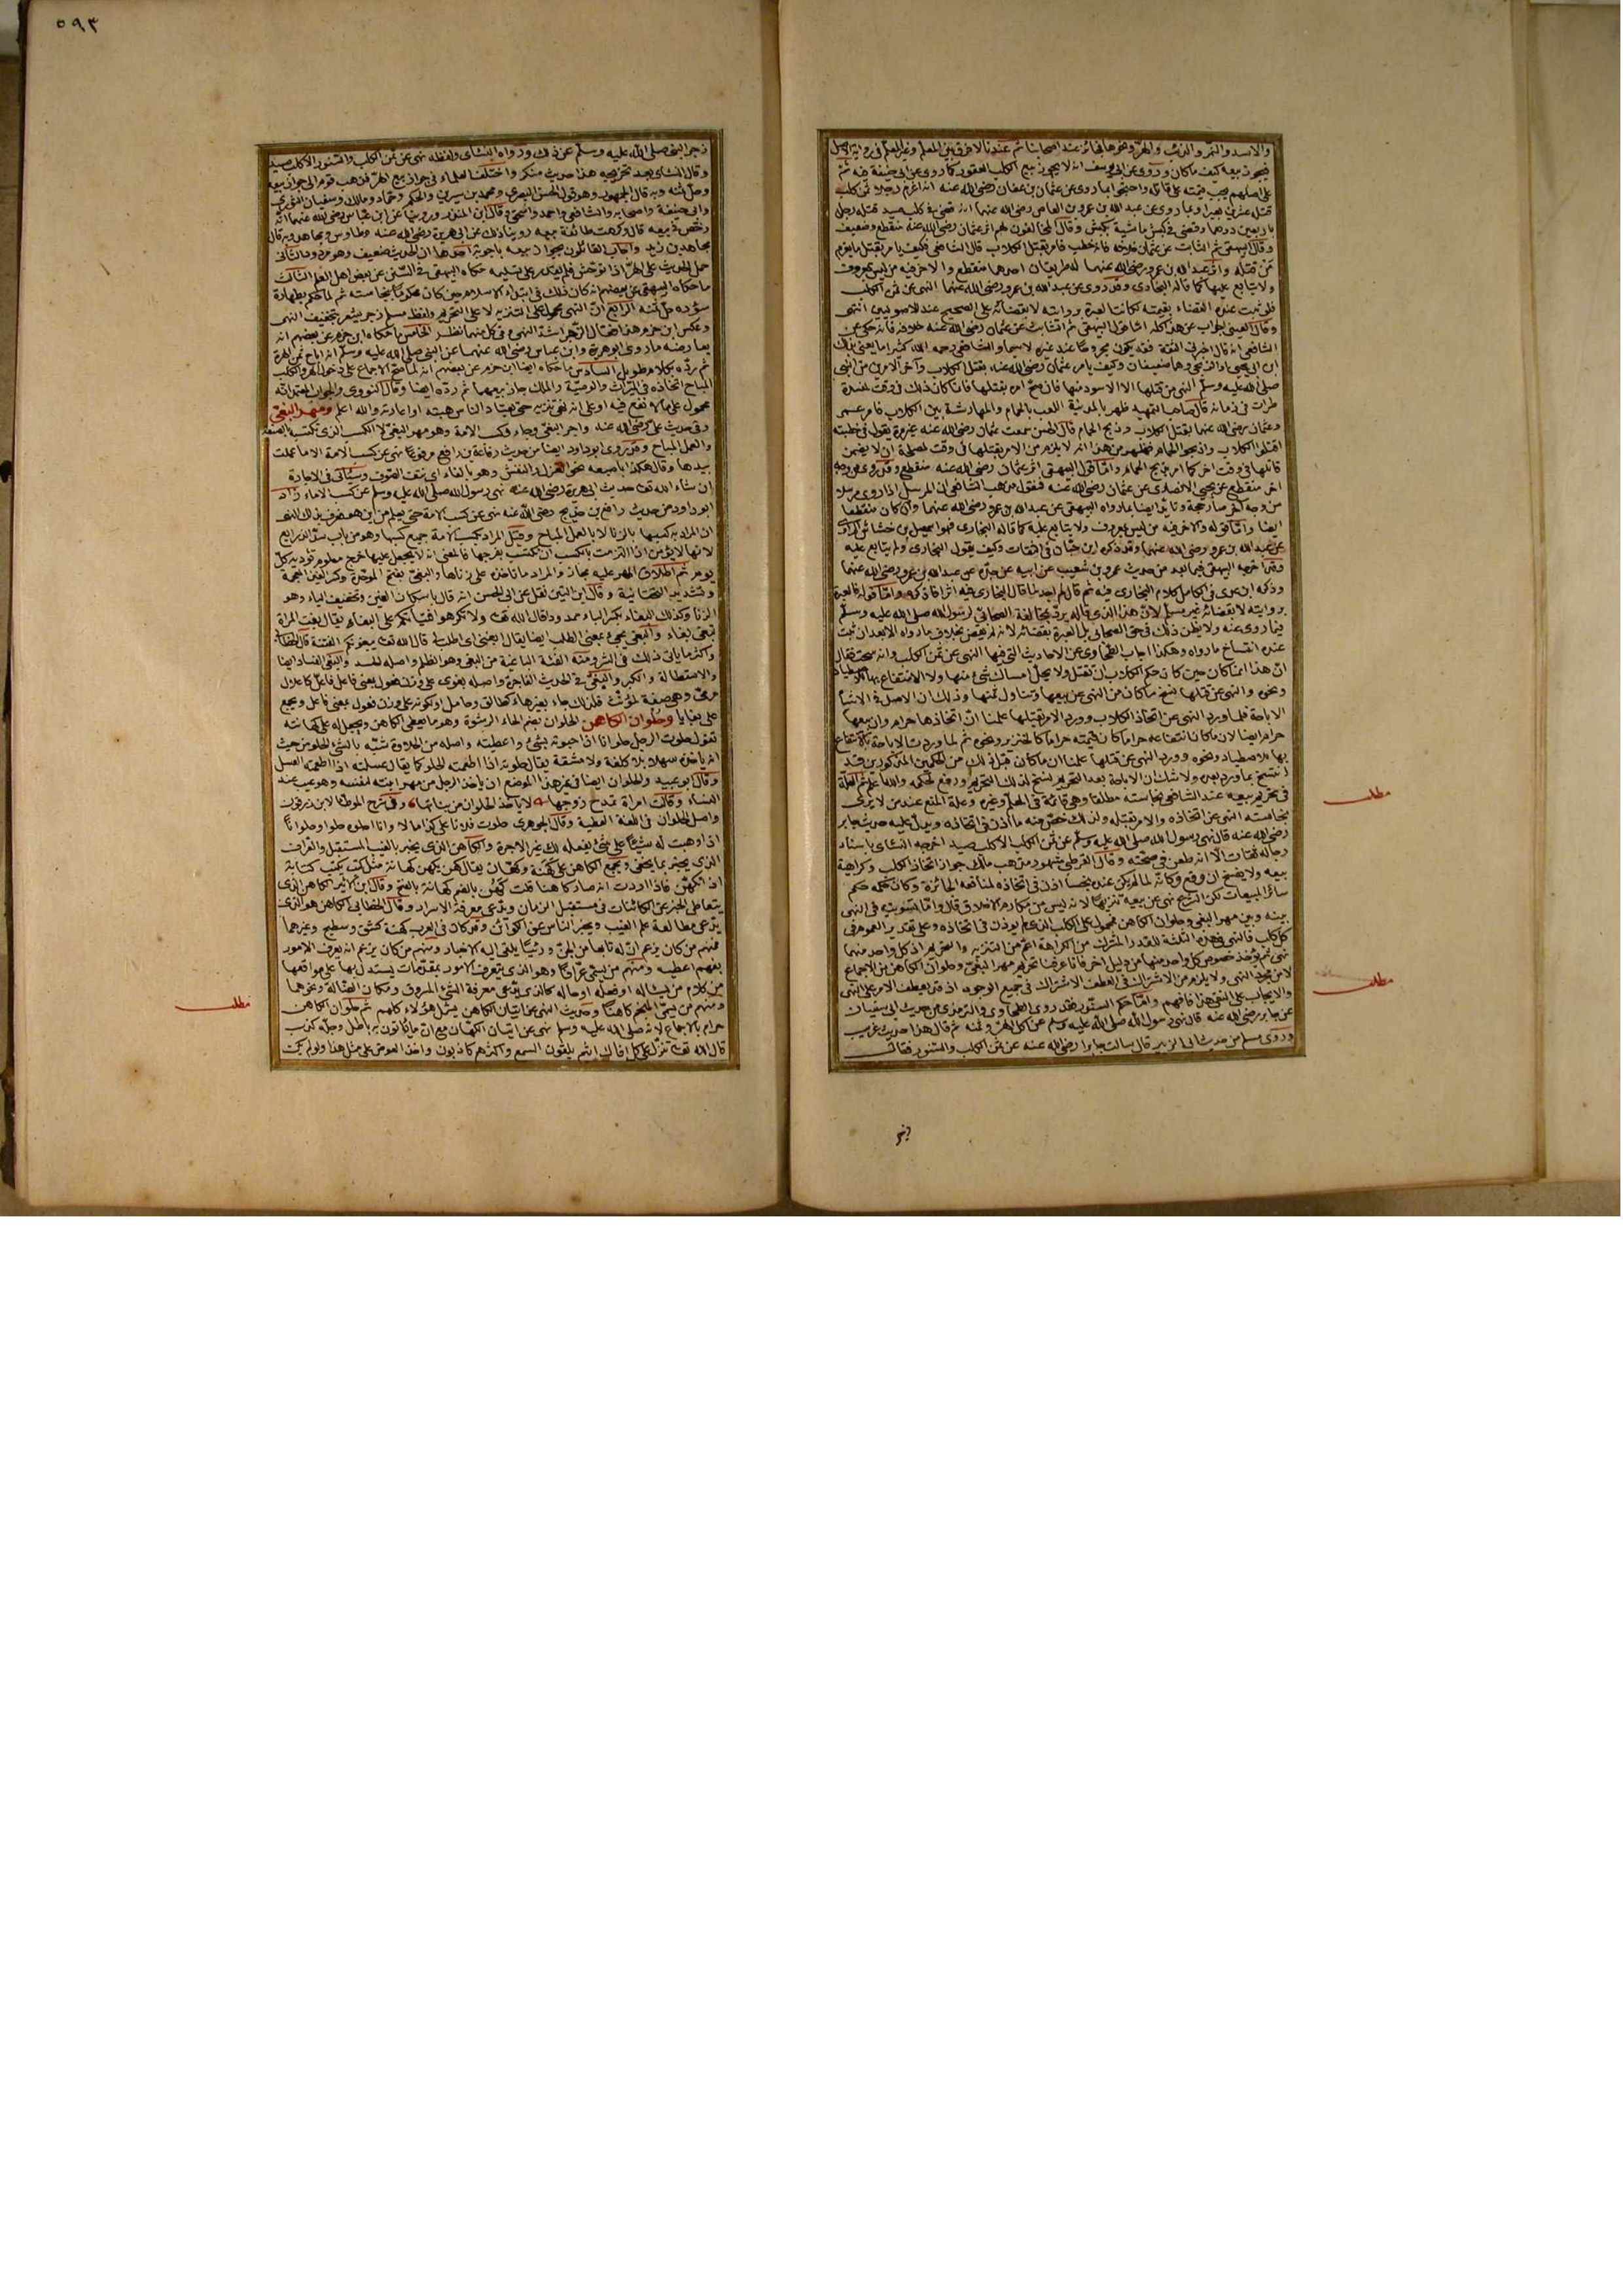 والاسد والنمر والذئب والهرّ ونحوها جائز عند اصحابنا ثم عندنا لا فرق بين المعلم وغير المعلم فى رواية الاصل
فيجوز بيعه كيف ما كان وروى عن ابى يوسف انه لا يجوز بيع الكلب العقور كما روى عن ابى حنيفة فيه ثم
على اصلهم يجب قيمته على قاتله واحتجوا بما روى عن عثمان بن عفان رضى الله عنه انه اغرم رجلا ثمن كلب
قتله عشرين بعيرا وبما روى عن عبد الله بن عمرو بن العاص رضى الله عنهما انه قضى فى كلب صيد قتله رجل
باربعين درهما وقضى فى كلب ماشية بكبش وقال المخالفون لهم اثر عثمان رضى الله عنه منقطع وضعيف
وقال البيهقى ثم الثابت عن عثمان خلافه فانه خطب فامر بقتل الكلاب قال الشافعى فكيف يأمر بقتل ما يغرم
من قتله واثر عبد الله بن عمرو رضى الله عنهما له طريقان احدهما منقطع والاخر فيه من ليس بمعروف
ولا يتابع عليها كما قاله البخارى وقد روى عن عبد الله بن عمرو رضى الله عنهما النهى عن ثمن الكلب
فلو ثبت عنه القضاء بقيمته لكانت العبرة بروايته لا بقضائه على الصحيح عند الاصوليين انتهى
وقال العينى الجواب عن هذا كله
الشافعى انه قال اخبرنى الثقة
صلى الله عليه وسلم النهى عن قتلها الا الاسود منها فان صح امره بقتلها فانما كان ذلك فى وقت لمفسدة
طرأت فى زمانه قال صاحب التمهيد ظهر بالمدينة اللعب بالحمام والمهارشة بين الكلاب فامر عمر
وعثمان رضى الله عنهما بقتل الكلاب وذبح الحمام قال الحسن سمعت عثمان رضى الله عنه غير مرة يقول فى خطبته
اقتلوا الكلاب واذبحوا الحمام فظهر من هذا انه لا يلزم من الامر بقتلها فى وقت لمصلحة ان لا يضمن
قاتلها فى وقت اخر كما امر بذبح الحمام واما قول البيهقى اثر عثمان رضى الله عنه منقطع وقد روى من وجه
اخر منقطع عن يحيى الانصارى عن عثمان رضى الله عنه فنقول مذهب الشافعى ان المرسل اذا روى مرسلا
من وجه آخر صار حجة وتأيد ايضا بما رواه البيهقى عن عبد الله بن عمرو رضى الله عنهما وان كان منقطعا
ايضا واما قوله والاخر فيه من ليس بمعروف ولا يتابع عليه كما قاله البخارى فهو اسمعيل بن خشاش الراوى
عن عبد الله بن عمرو رضى الله عنهما وقد ذكره ابن حبان فى الثقات وكيف يقول البخارى ولم يتابع عليه
وقد اخرجه البيهقى فيما بعد من حديث عمرو بن شعيب عن ابيه عن جده عن عبد الله بن عمرو رضى الله عنهما
وذكره ابن عدى فى الكامل كلام البخارى فيه ثم قال لم اجد لما قال البخارى فيه اثرا فاذكره واما قوله فالعبرة
بروايته لا بقضائه غير مسلم لان هذا الذى قاله يردّ مخالفة الصحابى لرسول الله صلى الله عليه وسلم
فيما روى عنه ولا يظن ذلك فى حق الصحابى بل العبرة بقضائه لانه لم يقض بخلاف ما رواه الا بعد ان ثبت
عنده انتساخ ما رواه وهكذا اجاب الطحاوى عن الاحاديث التى فيها النهى عن ثمن الكلب وانه سحت فقال
ان هذا انما كان حين كان حكم الكلاب ان تقتل ولا يحل امساك شئ منها ولا الانتفاع بها
ونحوه والنهى عن قتلها نسخ ما كان من النهى عن بيعها وتناول ثمنها وذلك ان الاصل فى الاشياء
الاباحة فلما ورد النهى عن اتخاذ الكلاب وورد الامر بقتلها علمنا ان اتخاذها حرام وان بيعها
حرام ايضا لان ما كان انتفاعه حراما كان قيمته حراما كالخنزير ونحوه ثم لما وردت الاباحة بالانتفاع
بها للاصطياد ونحوه وورد النهى عن قتلها علمنا ان ما كان قبل ذلك من الحكمين المذكورين قد
انتسخ بما ورد بعده ولا شك ان الاباحة بعد التحريم نسخ لذلك التحريم ورفع لحكمه والله اعلم ثم العلة
فى تحريم بيعه عند الشافعى نجاسته مطلقا وهى قائمة فى المعلم وغيره وعلة المنع عند من لا يرى
نجاسته النهى عن اتخاذه والامر بقتله ولذلك خص منه ما اذن فى اتخاذه ويدل عليه حديث جابر
رضى الله عنه قال نهى رسول الله صلى الله عليه وسلم عن ثمن الكلب الا كلب صيد اخرجه النسائى باسناد
رجاله ثقات الا انه طعن فى صحته وقال القرطبى مشهور مذهب مالك جواز اتخاذ الكلب وكراهية
بيعه ولا يفسخ ان وقع وكانه لما لم يكن عنده نجسا اذن فى اتخاذه لمنافعه الجائزة وكان حكمه حكم
سائر المبيعات لكن الشرع نهى عن بيعه تنزيها لانه ليس من مكارم الاخلاق قال واما تسويته فى النهى
بينه وبين مهر البغى وحلوان الكاهن فمحمول على الكلب الذى لم يؤذن فى اتخاذه وعلى تقدير العموم فى
كل كلب فالنهى فى هذه الثلثة للقدر المشترك من الكراهة اعم من التنزيه والتحريم اذ كل واحد منهما
نهى ثم يؤخذ خصوص كل واحد منهما من دليل اخر فانا عرفنا تحريم مهر البغى وحلوان الكاهن من الاجماع
لا من مجرد النهى ولا يلزم من الاشتراك فى العطف الاشتراك فى جميع الوجوه اذ قد يعطف الامر على النهى
والايجاب على النفى هذا فافهم واما حكم السنور فقد روى الطحاوى والترمذى من حديث ابى سفيان
عن جابر رضى الله عنه قال نهى رسول الله صلى الله عليه وسلم عن اكل الهر وثمنه ثم قال هذا حديث غريب
وروى مسلم من حديث ابى الزبير قال سالت جابرا رضى الله عنه عن ثمن الكلب والسنور فقال
مطلب
مطلب
زجر
٥٩٣
زجر النبى صلى الله عليه وسلم عن ذلك ورواه النسائى ولفظه نهى عن ثمن الكلب والسنور الا كلب صيد
وقال النسائى بعد تخريجه هذا حديث منكر واختلف العلماء فى جواز بيع الهرّ فذهب قوم الى جواز بيعه
وحل ثمنه وبه قال الجمهور وهو قول الحسن البصرى ومحمد بن سيرين والحكم وحماد ومالك وسفيان الثورى
وابى حنيفة واصحابه والشافعى واحمد واسحق وقال ابن المنذر وروينا عن ابن عباس رضى الله عنهما انه
رخص فى بيعه قال وكرهت طائفة بيعه روينا ذلك عن ابى هريرة رضى الله عنه وطاوس ومجاهد وبه قال
جابر بن زيد واجاب القائلون بجواز بيعه باجوبة احدها ان الحديث ضعيف وهو مردود الثانى
حمل الحديث على الهرّ اذا توحش فلم يقدر على تسليمه حكاه البيهقى فى السنن عن بعض اهل العلم الثالث
ما حكاه البيهقى عن بعضهم انه كان ذلك فى ابتداء الاسلام حين كان محكوما بنجاسته ثم لما حكم بطهارة
سؤره حل ثمنه الرابع ان النهى محمول على التنزيه لا على التحريم ولفظ مسلم زجر يشعر بتخفيف النهى
الخامس ما حكاه ابن حزم عن بعضهم انه
يعارضه ما روى ابو هريرة وابن عباس رضى الله عنهما عن النبى صلى الله عليه وسلم انه اباح ثمن الهرة
ثم ردّه بكلام طويل السادس ما حكاه ايضا ابن حزم عن بعضهم انه لما صح الاجماع على
المباح اتخاذه فى الميراث والوصية والملك جاز بيعهما ثم ردّه ايضا وقال النووى والجواب المعتمد انه
محمول على ما لا نفع فيه او على انه نهى تنزيه حتى يعتاد الناس هبته او اعارته والله اعلم ومهر البغىّ
وفى حديث على رضى الله عنه واجر البغىّ وجاء وكسب الامة وهو مهر البغىّ لا الكسب الذى تكتسبه بالصنعة
والعمل المباح وقد روى ابو داود ايضا من حديث رفاعة بن رافع مرفوعا نهى عن كسب الامة الا ما عملت
بيدها وقال هكذا باصبعه نحو الغزل والنفش وهو بالفاء اى نتف الصوف وسيأتى فى الاجارة
ان شاء الله تعالى حديث ابى هريرة رضى الله عنه نهى رسول الله صلى الله عليه وسلم عن كسب الاماء زاد
ابو داود من حديث رافع بن خديج رضى الله عنه نهى عن كسب الامة حتى يعلم من اين هو فعرف بذلك النهى
ان المراد به كسبها بالزنا لا بالعمل المباح وقيل المراد بكسب الامة جميع كسبها وهو من باب سدّ الذرايع
لانها لا يؤمن اذا الزمت بالكسب ان تكتسب بفرجها فالمعنى انه لا يجعل عليها خراج معلوم تؤديه كل
يوم ثم اطلاق المهر عليه مجاز والمراد ما تاخذه على زناها والبغىّ بفتح الموحدة وكسر الغين المعجمة
وتشديد التحتانية وقال ابن التين نقل عن ابى الحسن انه قال باسكان الغين وتخفيف الياء وهو
الزنا وكذلك البغاء بكسر الباء ممدودا قال الله تعالى ولا تكرهوا فتياتكم على البغاء يقال بغت المرأة
تبغى بغاء والبغى يجئ بمعنى الطلب ايضا يقال ابغنى اى اطلب لى قال الله تعالى يبغونكم الفتنة قال الخطابى
واكثر ما ياتى ذلك فى الشر ومنه الفئة الباغية من البغى وهو الظلم واصله الحسد والبغى الفساد ايضا
والاستطالة والكبر والبغىّ فى الحديث الفاجرة واصله بغوى على وزن فعول بمعنى فاعل
وهى صفة لمؤنث فلذلك جاء بغير هاء
على بغايا وحلوان الكاهن الحلوان بضم الحاء الرشوة وهو ما يعطى الكاهن ويجعل له على كهانته
تقول حلوت الرجل حلوانا اذا حبوته بشئ واعطيته واصله من الحلاوة شبّه بالشئ الحلو من حيث
انه ياخذه سهلا بلا كلفة ولا مشقة يقال حلوته اذا اطعمته الحلو كما يقال عسلته اذا اطعمته العسل
وقال ابو عبيد والحلوان ايضا فى غير هذا الموضع ان ياخذ الرجل من مهر ابنته لنفسه وهو عيب عند
النساء وقالت امرأة تمدح زوجها لا ياخذ الحلوان من بناتنا وفى شرح الموطأ لابن زرقون
واصل الحلوان فى اللغة العطية وقال الجوهرى حلوت فلانا على كذا مالا وانا احلوه حلوا وحلوانا
اذا وهبت له شيئا على شئ يفعله لك غير الاجرة والكاهن الذى يخبر بالغيب المستقبل والعراف
الذى يخبر بما يخفى ويجمع الكاهن على كهنة وكهّان يقال كهن يكهن كهانة مثل كتب يكتب كتابة
اذا تكهّن فاذا اردت انه صار كاهنا قلت كهُن بالضم كهانة بالفتح وقال ابن الاثير الكاهن الذى
يتعاطى الخبر عن الكائنات فى مستقبل الزمان ويدّعى معرفة الاسرار وقال الخطابى الكاهن هو الذى
يدّعى مطالعة علم الغيب ويخبر الناس عن الكوائن وقد كان فى العرب كهنة كشق وسطيح وغيرهما
فمنهم من كان يزعم ان له تابعا من الجن ورئيّا يلقى اليه الاخبار ومنهم من كان يزعم انه يعرف الامور
بفهم اعطيه ومنهم من يسمى عرّافا وهو الذى يتعرف الامور بمقدمات يستدل بها على مواقعها
من كلام من يسأله او فعله او حاله كالذى يدّعى معرفة الشئ المسروق ومكان الضالة ونحوهما
ومنهم من يسمّى المنجم كاهنا وحديث النهى عن اتيان الكاهن يشمل هؤلاء كلهم ثم حلوان الكاهن
حرام بالاجماع لانه صلى الله عليه وسلم نهى عن اتيان الكهان مع ان ما ياتون به باطل وجلّه كذب
قال الله تعالى تنزل على كل افاك اثيم يلقون السمع واكثرهم كاذبون واخذ العوض على مثل هذا ولو لم يكن
مطلب